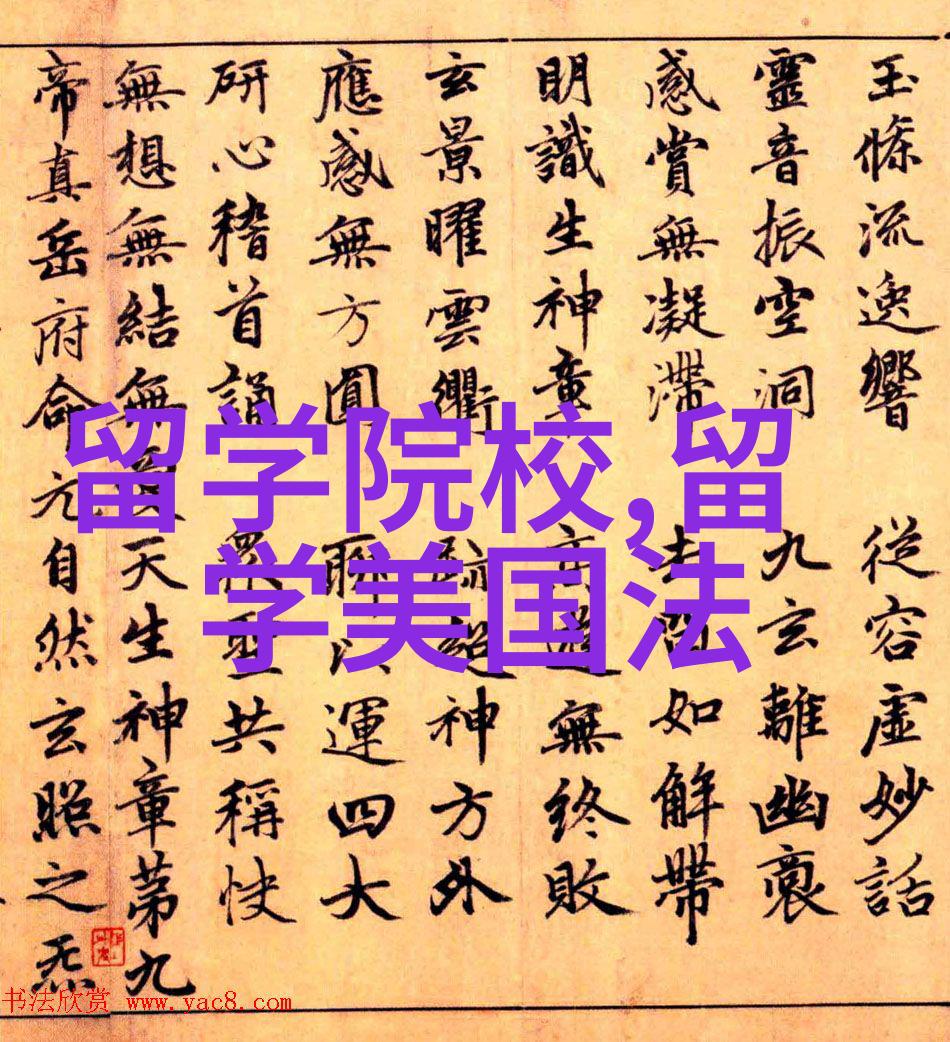 玉條流逸響 從容虛妙話
靈音振空洞 九玄離幽裛
感賞無凝滯 去 如解帶
明識生神童 無終敗
玄景曜雲衢 神方外
應感無方圓 聊 運四大
研心稽首誦 衆聖共稱快
無想無結無愛天生神章第九
帝真岳府命元自然玄照之炁
留学院校,留
学美国法
书法欣赏 www.yac8.com